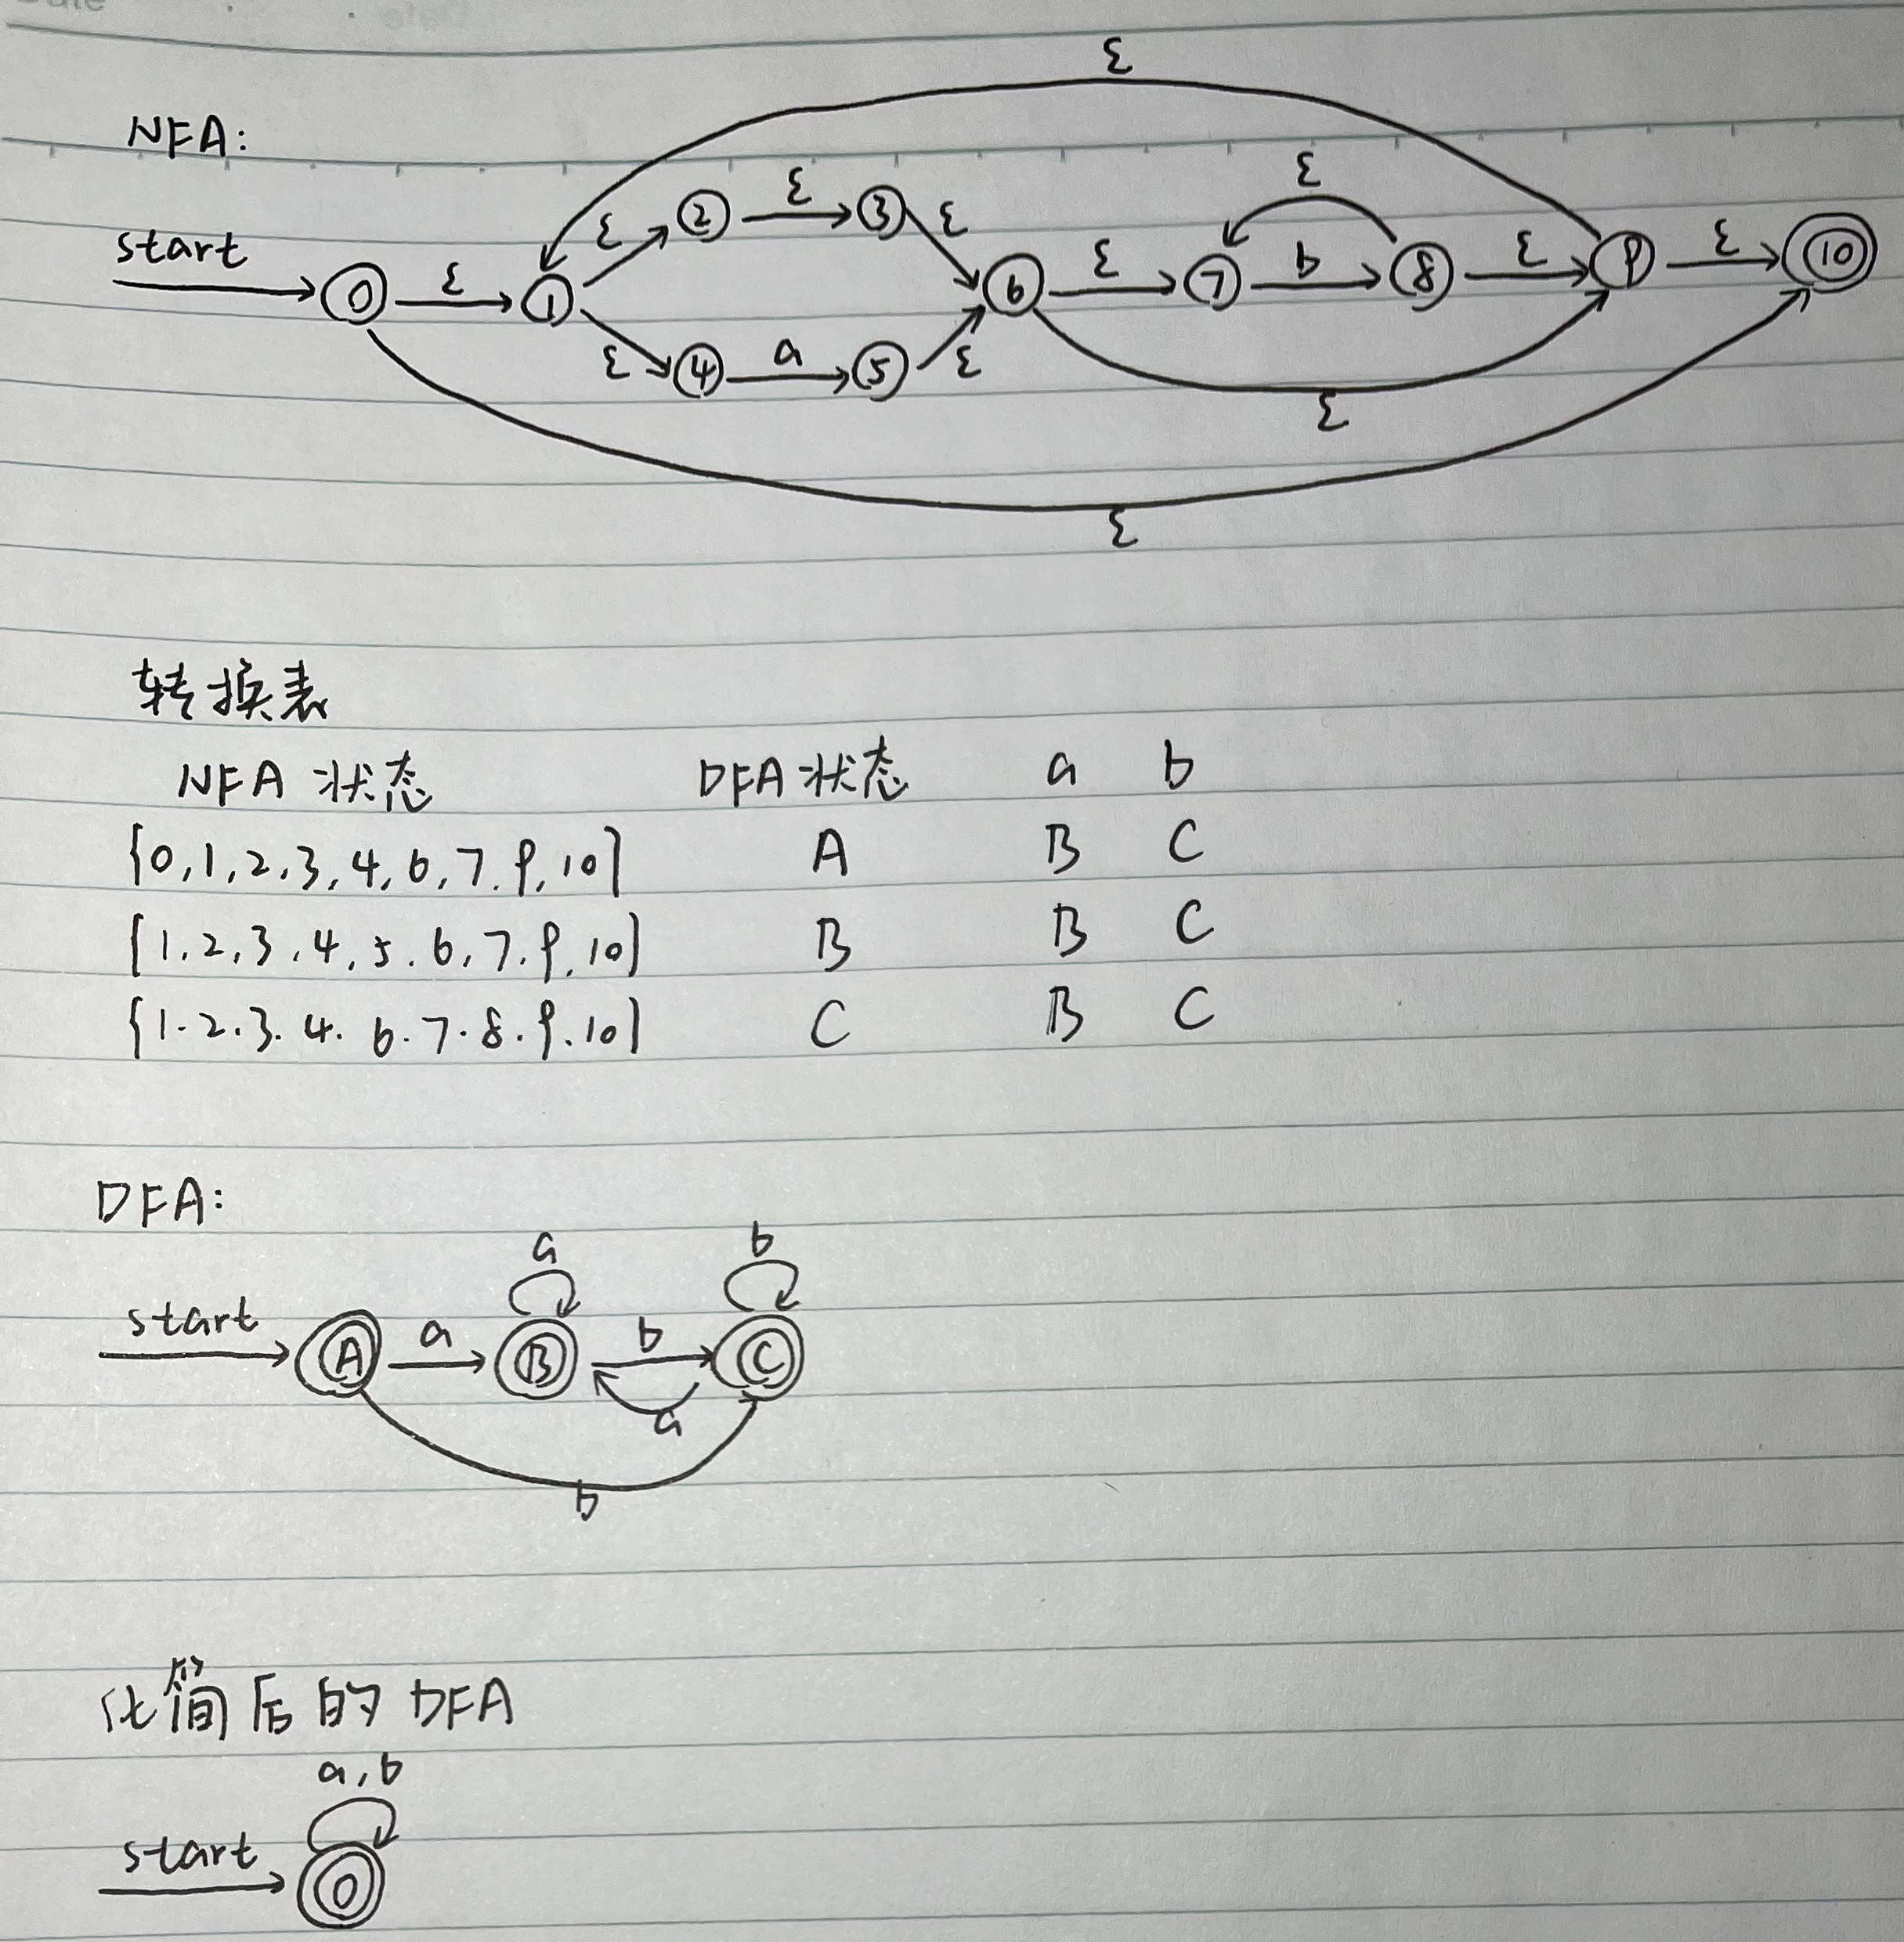 NFA:
ε
ε ε ε ε
start 0 ε 1 2 3 6 ε 7 b 8 ε 9 ε 10
ε 4 a 5 ε
ε
ε
转换表
NFA 状态 DFA 状态 a b
{0,1,2,3,4,6,7.9,10} A B C
{1,2,3,4,5.6,7.9,10} B B C
{1.2.3.4.6.7.8.9.10} C B C
DFA:
a b
start A a B b C
a
b
化简后的 DFA
a,b
start 0